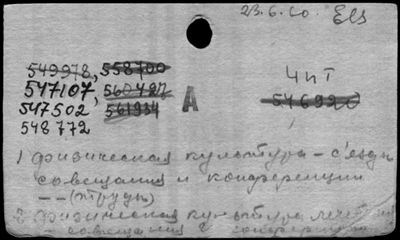 23.6.60. Els
549978, 558700
547107, 560487
547502 561934
548772
A
Чит
546920
1 физическая культура - съезды
совещания и конференции
-- (труды)
2 физическая культура
- совещания и конференции